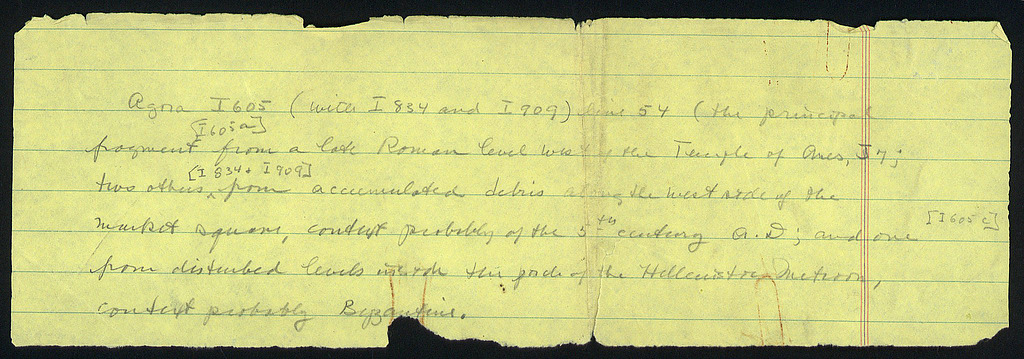 Agora I 605 (with I 834 and I 909) line 54 (the principal
[I 605a]
fragment from a late Roman level west of the Temple of Ares, J 7;
[I 834 + I 909]
two others ^ from accumulated debris along the west side of the
[I 605 c]
market square, context probably of the 5th century A.D.; and one
from disturbed levels the porch of the Hellenistic Metroon,
context probably Byzantine.